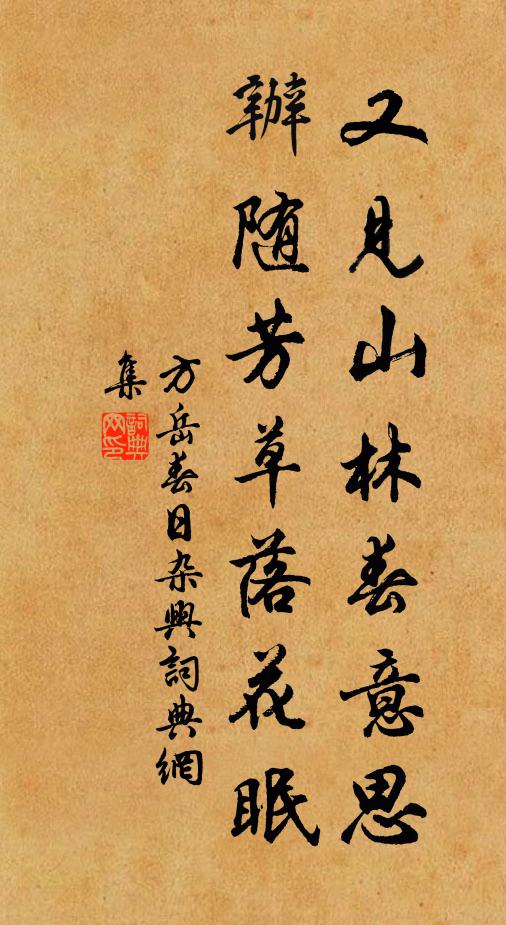 又見山林春意思
辦随芳草落花眠
方岳春日杂興詞典網
集
詞典网印